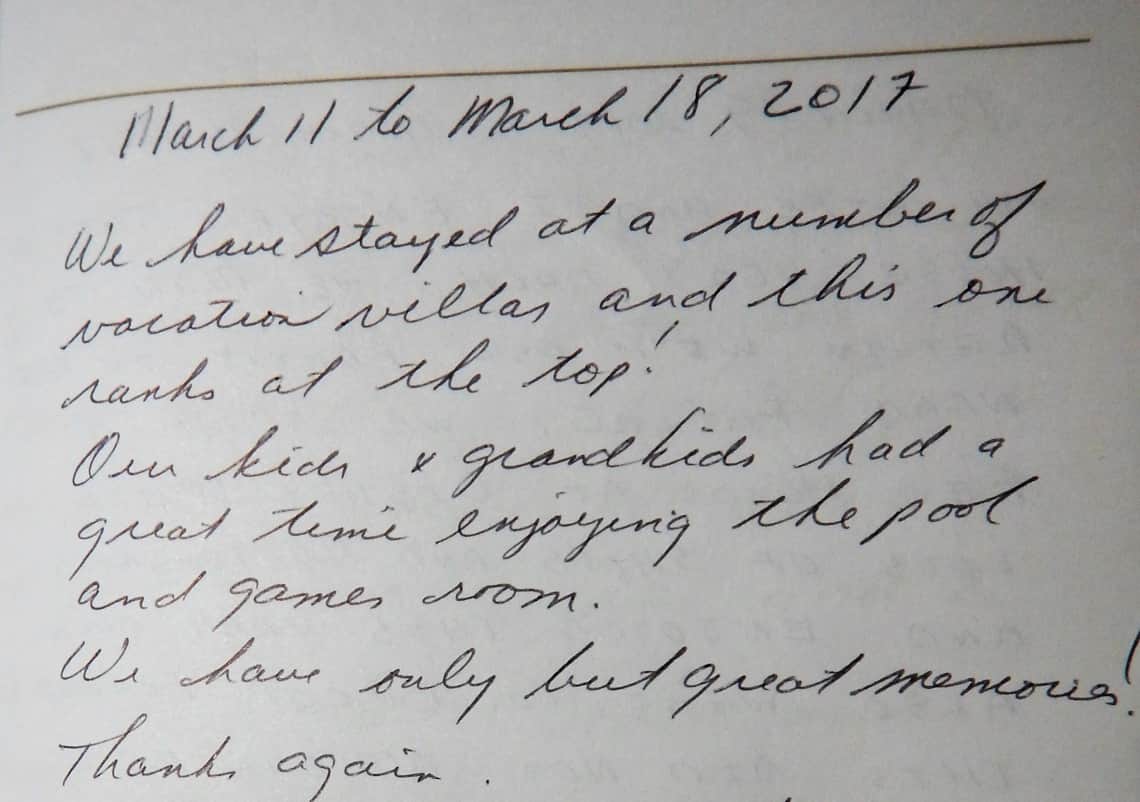 March 11 to March 18, 2017
We have stayed at a number of
vacation villas and this one
ranks at the top!
Our kids & grandkids had a
great time enjoying the pool
and games room.
We have only but great memories!
Thanks again.